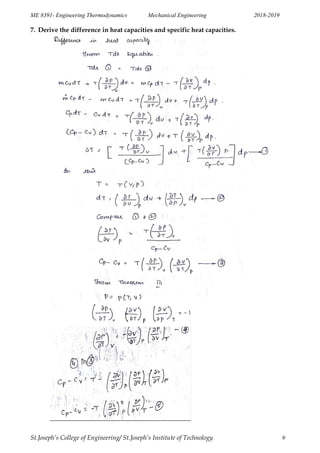 ME 8391- Engineering Thermodynamics Mechanical Engineering 2018-2019
7. Derive the difference in heat capacities and specific heat capacities.
Difference in heat capacity
From Tds Equation
Tds ① = Tds ②
mCvdT + T(∂P/∂T)v dv = mCpdT - T(∂v/∂T)p dp
mCpdT - mCvdT = T(∂P/∂T)v dv + T(∂v/∂T)p dp
CpdT - CvdT = T(∂P/∂T)v dv + T(∂v/∂T)p dp
(Cp-Cv) dT = T(∂P/∂T)v dv + T(∂v/∂T)p dp
dT = [T(∂P/∂T)v / (Cp-Cv)] dv + [T(∂v/∂T)p / Cp-Cv] dp → ①
In this
T = T(v,p)
dT = (∂T/∂v)p dv + (∂T/∂p)v dp → ②
Compare ① & ②
(∂T/∂v)p = T(∂P/∂T)v / Cp-Cv
Cp-Cv = T(∂P/∂T)v (∂v/∂T)p → ③
From Theorem III
P = p(T,v)
(∂P/∂T)v (∂v/∂T)p (∂v/∂p)T = -1
(∂P/∂T)v = -(∂v/∂T)p (∂P/∂v)T - ④
④ in ③
Cp-Cv = T - (∂v/∂T)p (∂P/∂v)T (∂v/∂T)p
Cp-Cv = -T (∂v/∂T)²p (∂P/∂v)T - ⑤
St.Joseph's College of Engineering/ St.Joseph's Institute of Technology 9